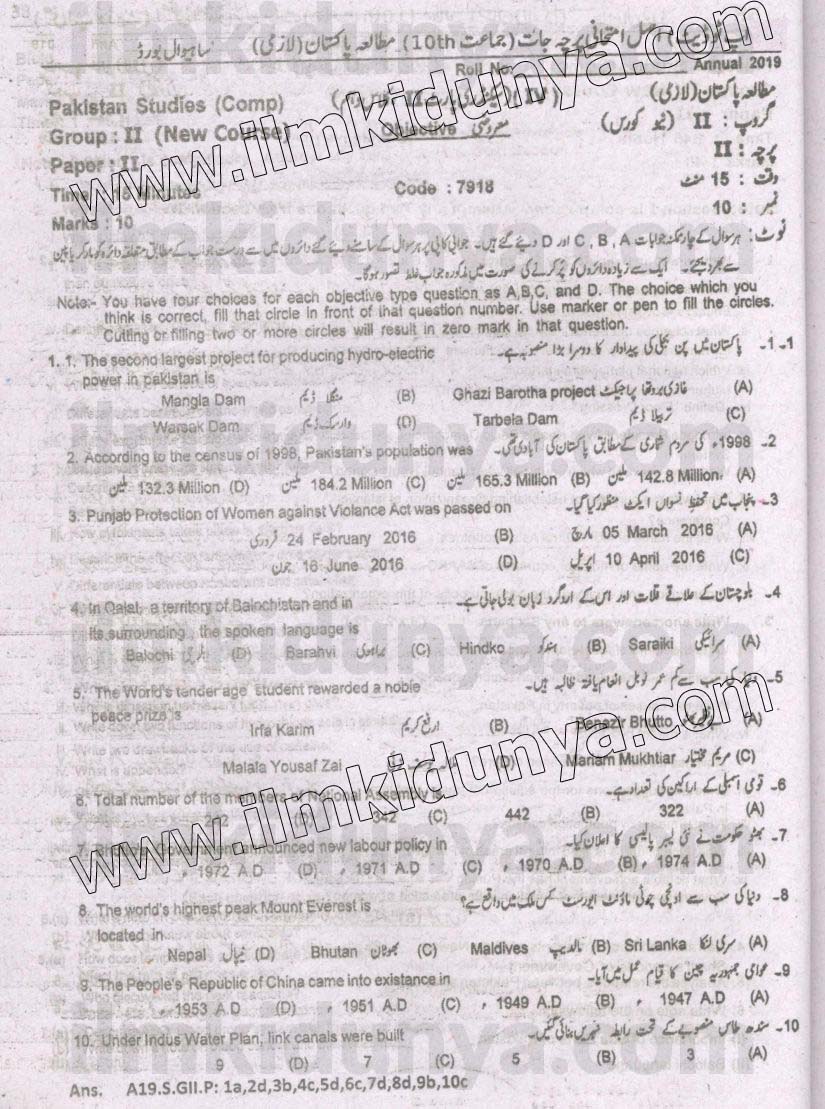 اپ ٹو ڈیٹ اصل امتحانی پرچہ جات (جماعت 10th) مطالعہ پاکستان (لازمی) ساہیوال بورڈ
Roll No. Annual 2019
Pakistan Studies (Comp) مطالعہ پاکستان (لازمی)
Group : II (New Course) گروپ : II (نیو کورس)
Paper : II Objective معروضی پرچہ : II
Code : 7918 وقت : 15 منٹ
Marks : 10 نمبر : 10
نوٹ: ہر سوال کے چار ممکنہ جوابات A ، B ، C اور D دیئے گئے ہیں۔ جوابی کاپی پر ہر سوال کے سامنے دیئے گئے دائروں میں سے درست جواب کے مطابق متعلقہ دائرہ کو مارکر یا پین
سے بھر دیجئے۔ ایک سے زیادہ دائروں کو پُر کرنے کی صورت میں مذکورہ جواب غلط تصور ہوگا۔
Note:- You have four choices for each objective type question as A,B,C, and D. The choice which you
think is correct, fill that circle in front of that question number. Use marker or pen to fill the circles.
Cutting or filling two or more circles will result in zero mark in that question.
1. 1. The second largest project for producing hydro-electric 1-1۔ پاکستان میں پن بجلی کی پیداوار کا دوسرا بڑا منصوبہ ہے۔
power in pakistan is
Mangla Dam منگلا ڈیم (B) Ghazi Barotha project غازی بروتھا پراجیکٹ (A)
Warsak Dam وارسک ڈیم (D) Tarbela Dam تربیلا ڈیم (C)
2. According to the census of 1998, Pakistan's population was 2۔ 1998ء کی مردم شماری کے مطابق پاکستان کی آبادی تھی۔
ملین 132.3 Million (D) ملین 184.2 Million (C) ملین 165.3 Million (B) ملین 142.8 Million. (A)
3. Punjab Protsction of Women against Violance Act was passed on 3۔ پنجاب میں تحفظ نسواں ایکٹ منظور کیا گیا۔
فروری 24 February 2016 (B) مارچ 05 March 2016 (A)
جون 16 June 2016 (D) اپریل 10 April 2016 (C)
4. In Qalat, a territory of Balochistan and in 4۔ بلوچستان کے علاقے قلات اور اس کے اردگرد زبان بولی جاتی ہے۔
its surrounding the spoken language is
Balochi بلوچی (D) Barahvi براہوی (C) Hindko ہندکو (B) Saraiki سرائیکی (A)
5. The World's tender age student rewarded a noble 5۔ دنیا کی سب سے کم عمر نوبل انعام یافتہ طالبہ ہیں۔
peace prize is
Irfa Karim ارفع کریم (B) Benazir Bhutto (A)
Malala Yousaf Zai (D) Mariam Mukhtiar مریم مختیار (C)
6. Total number of the members of National Assembly is 6۔ قومی اسمبلی کے اراکین کی تعداد ہے۔
(D) 342 (C) 442 (B) 322 (A)
7. Government announced new labour policy in 7۔ بھٹو حکومت نے نئی لیبر پالیسی کا اعلان کیا۔
، 1972 A.D (D) ، 1971 A.D (C) ، 1970 A.D (B) ، 1974 A.D (A)
8. The world's highest peak Mount Everest is 8۔ دنیا کی سب سے اونچی چوٹی ماؤنٹ ایورسٹ کس ملک میں واقع ہے؟
located in
Nepal نیپال (D) Bhutan بھوٹان (C) Maldives مالدیپ (B) Sri Lanka سری لنکا (A)
9. The People's Republic of China came into existance in 9۔ عوامی جمہوریہ چین کا قیام عمل میں آیا۔
، 1953 A.D (D) ، 1951 A.D (C) ، 1949 A.D (B) ، 1947 A.D (A)
10. Under Indus Water Plan, link canals were built 10۔ سندھ طاس منصوبے کے تحت رابطہ نہریں بنائی گئیں۔
9 (D) 7 (C) 5 (B) 3 (A)
Ans. A19.S.GII.P: 1a,2d,3b,4c,5d,6c,7d,8d,9b,10c
www.ilmkidunya.com
www.ilmkidunya.com